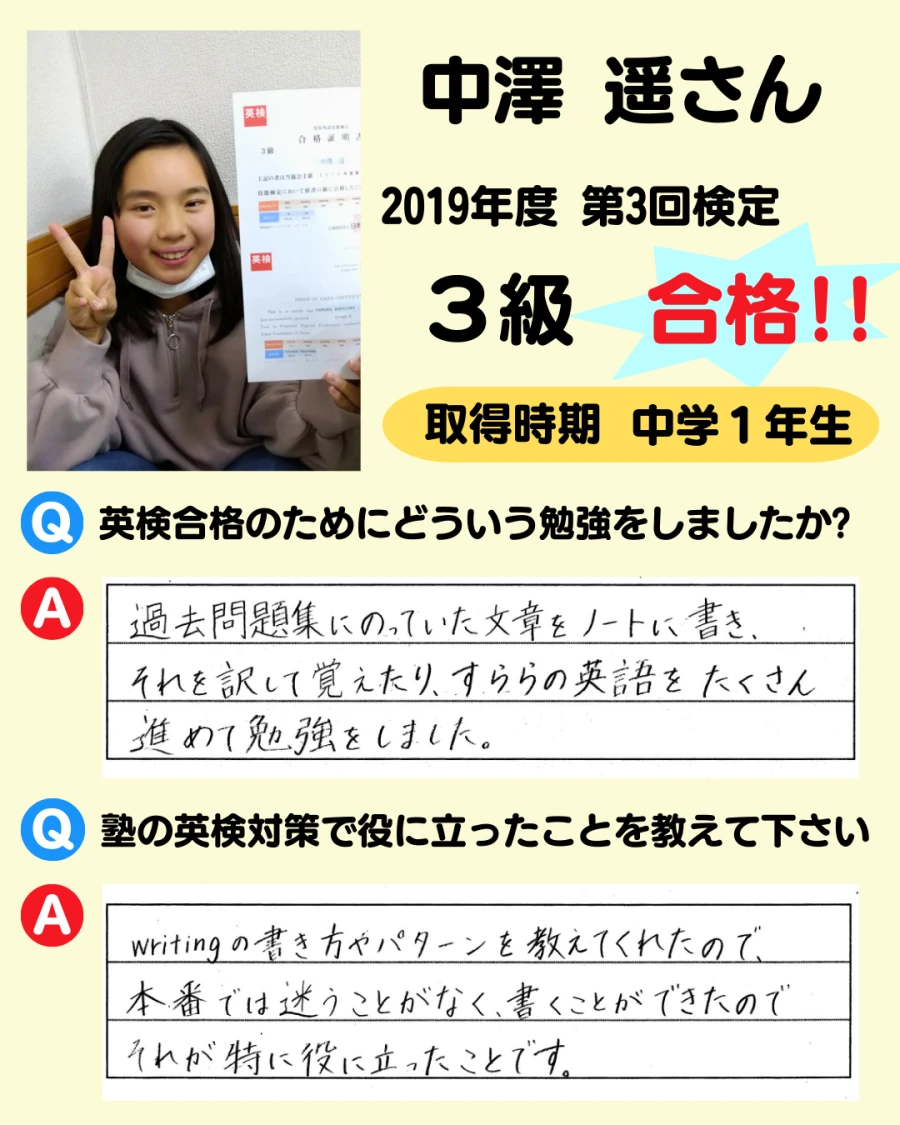 中澤 遥さん
2019年度 第3回検定
３級 合格!!
取得時期 中学１年生
英検
合格証明書
3級
英検
Q 英検合格のためにどういう勉強をしましたか?
A 過去問題集にのっていた文章をノートに書き、
それを訳して覚えたり、すららの英語をたくさん
進めて勉強をしました。
Q 塾の英検対策で役に立ったことを教えて下さい
A writingの書き方やパターンを教えてくれたので、
本番では迷うことがなく、書くことができたので
それが特に役に立ったことです。